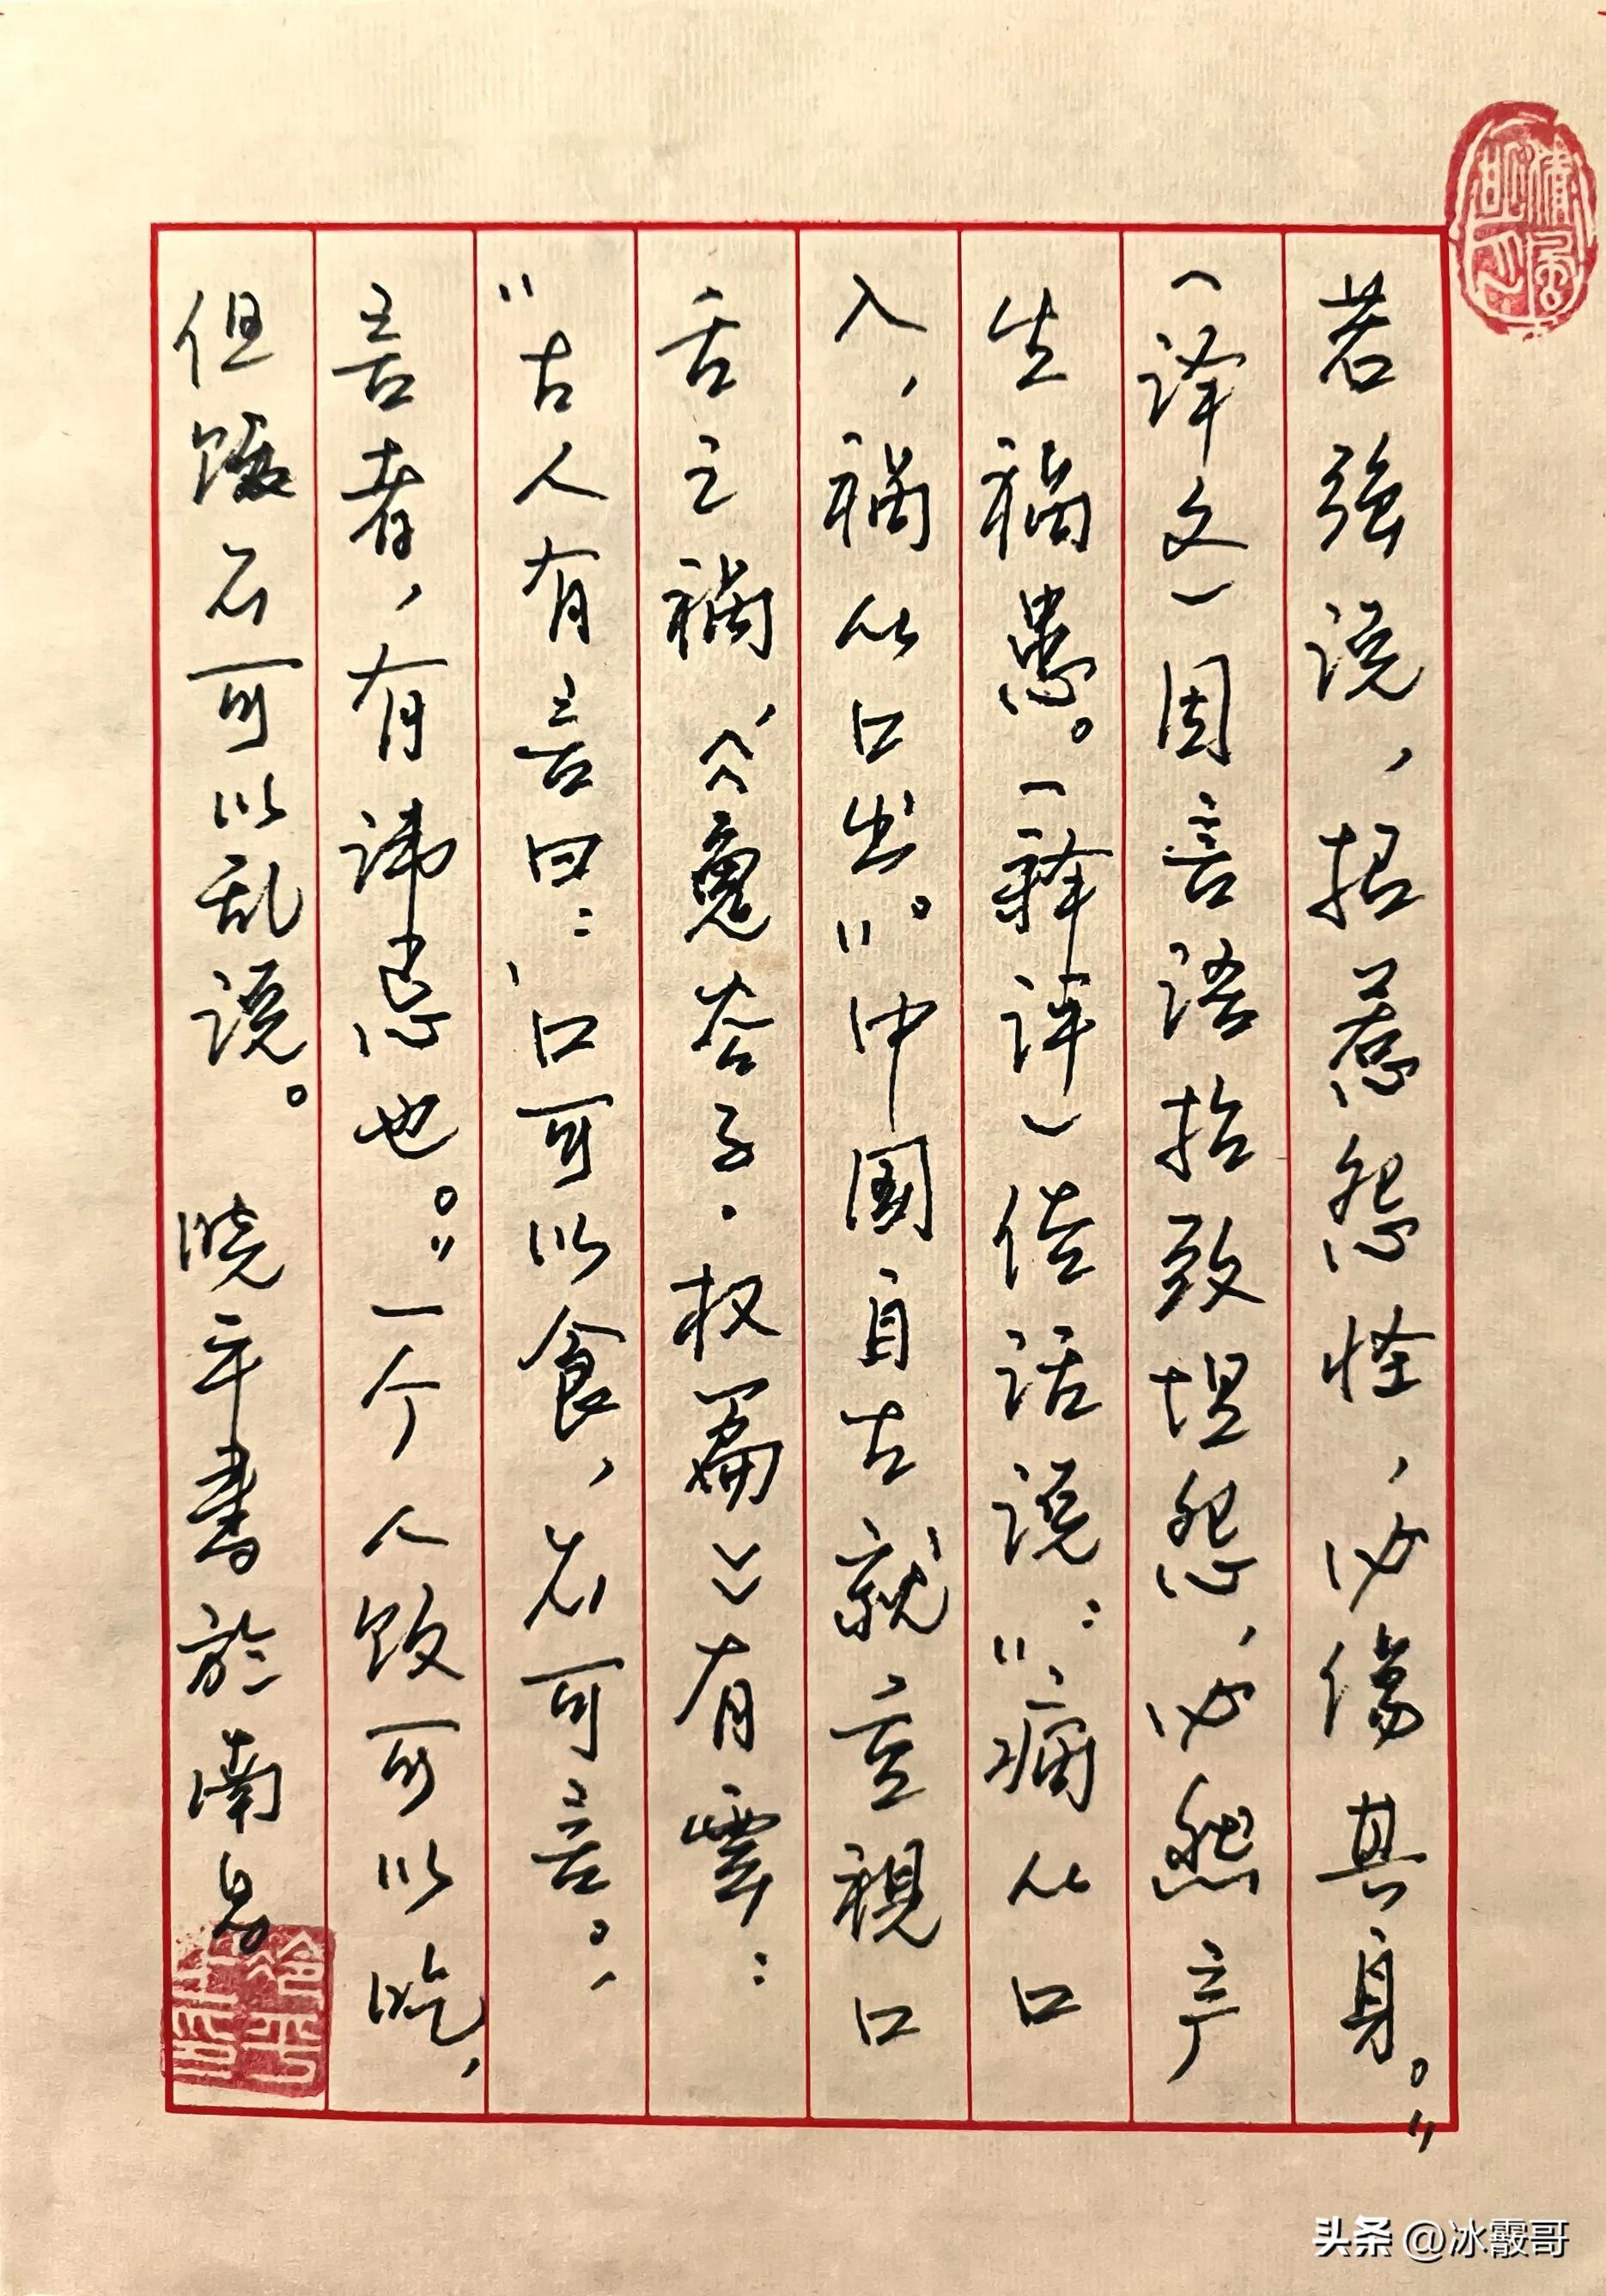 若強说，招惹怨怪，必傷其身。”
（译文）因言语招致埋怨，必然产
生祸患。（释评）俗话说：“病从口
入，祸从口出。”中国自古就重視口
舌之祸，《鬼谷子·权篇》有雲：
“古人有言曰：‘口可以食，不可言。’
言者，有讳忌也。”一个人饭可以吃，
但不可以乱说。 晓平書於南昌
头条 @冰霰哥